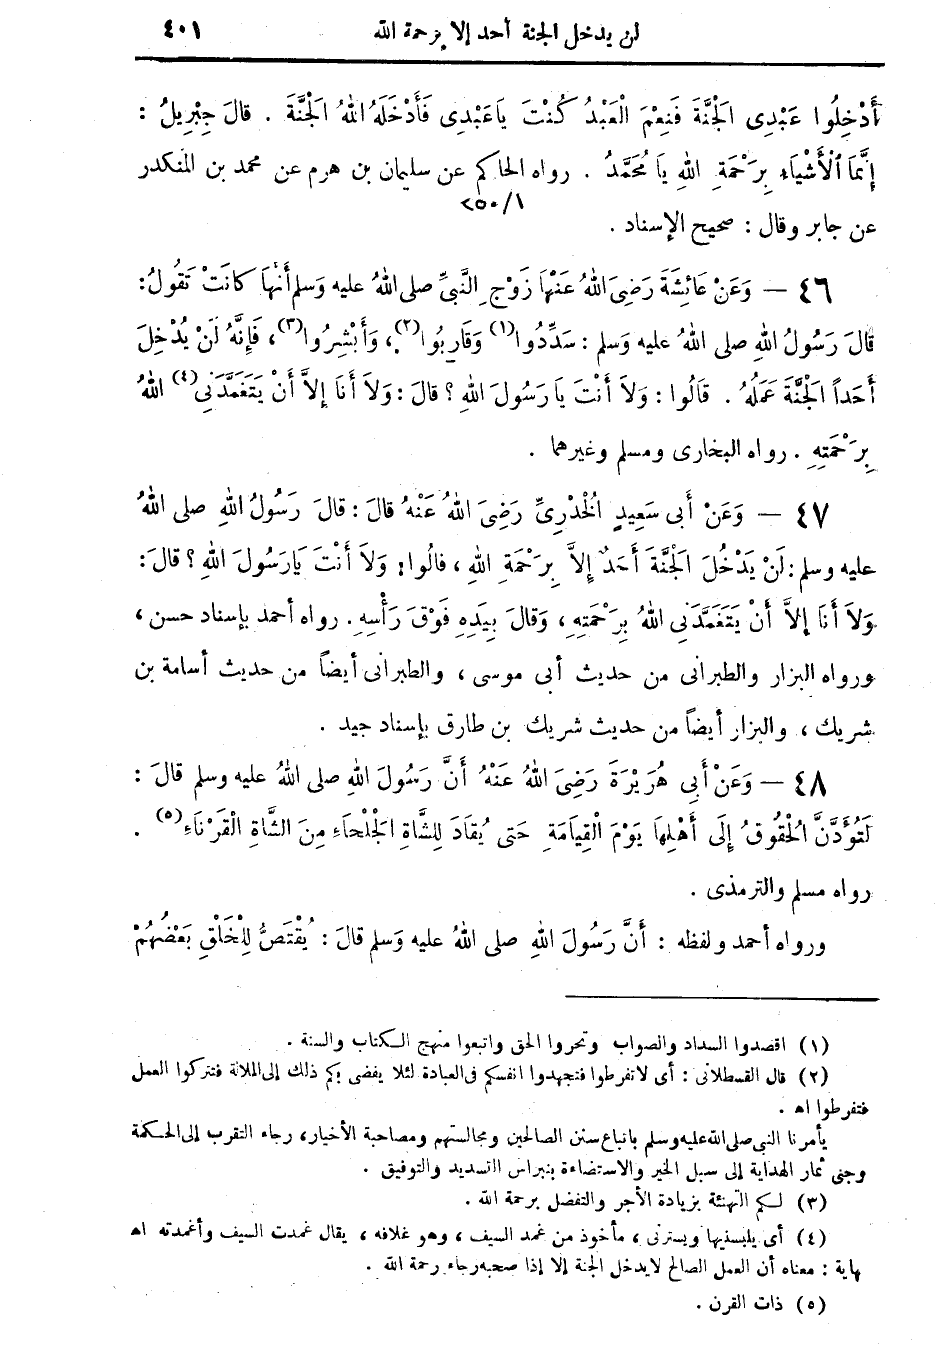 لن يدخل الجنة أحد إلا برحمة الله ٤٠١
أَدْخِلُوا عَبْدِى الْجَنَّةَ فَنِعْمَ الْعَبْدُ كُنْتَ يَا عَبْدِى فَأَدْخَلَهُ اللهُ الْجَنَّةَ . قالَ جِبْرِيلُ :
إِنَّمَا الْأَشْيَاءُ بِرَحْمَةِ اللهِ يَا مُحَمَّدُ . رواه الحاكم عن سليمان بن هرم عن محمد بن المنكدر
عن جابر وقال : صحيح الإسناد .
٤٦ — وَعَنْ عَائِشَةَ رَضِىَ اللهُ عَنْهَا زَوْجِ النَّبِىِّ صلى اللهُ عليه وَسلم أَنَّهَا كَانَتْ تَقُولُ :
قَالَ رَسُولُ اللهِ صلى اللهُ عليه وَسلم : سَدِّدُوا (١) وَقَارِبُوا (٢) ، وَأَبْشِرُوا (٣) ، فَإِنَّهُ لَنْ يُدْخِلَ
أَحَداً الْجَنَّةَ عَمَلُهُ . قَالُوا : وَلاَ أَنْتَ يَا رَسُولَ اللهِ ؟ قالَ : وَلاَ أَنَا إِلاَّ أَنْ يَتَغَمَّدَنِى (٤) اللهُ
بِرَحْمَتِهِ . رواه البخارى ومسلم وغيرهما .
٤٧ — وَعَنْ أَبى سَعِيدٍ الْخُدْرِىِّ رَضِىَ اللهُ عَنْهُ قالَ : قالَ رَسُولُ اللهِ صلى اللهُ
عليه وسلم : لَنْ يَدْخُلَ الْجَنَّةَ أَحَدٌ إِلاَّ بِرَحْمَةِ اللهِ ، قالُوا : وَلاَ أَنْتَ يَارَسُولَ اللهِ ؟ قالَ :
وَلاَ أَنَا إِلاَّ أَنْ يَتَغَمَّدَنِى اللهُ بِرَحْمَتِهِ ، وَقالَ بِيَدِهِ فَوْقَ رَأْسِهِ . رواه أحمد بإسناد حسن ،
ورواه البزار والطبرانى من حديث أبى موسى ، والطبرانى أيضاً من حديث أسامة بن
شريك ، والبزار أيضاً من حديث شريك بن طارق بإسناد جيد .
٤٨ — وَعَنْ أَبِى هُرَيْرَةَ رَضِىَ اللهُ عَنْهُ أَنَّ رَسُولَ اللهِ صلى اللهُ عليه وسلم قالَ :
لَتُؤَدَّنَّ الْحُقُوقُ إِلَى أَهْلِهَا يَوْمَ الْقِيَامَةِ حَتى يُقَادَ لِلشَّاةِ الْجَلْحَاءِ مِنَ الشَّاةِ الْقَرْنَاءِ (٥) .
رواه مسلم والترمذى .
ورواه أحمد ولفظه : أَنَّ رَسُولَ اللهِ صلى اللهُ عليه وَسلم قالَ : يُقْتَصُّ لِلْخَلْقِ بَعْضُهُمْ
(١) اقصدوا السداد والصواب وتحروا الحق واتبعوا منهج الكتاب والسنة .
(٢) قال القسطلانى : أى لاتفرطوا فتجهدوا انفسكم فى العبادة لئلا يفضى بكم ذلك إلى الملالة فتتركوا العمل
فتفرطوا اهـ .
يأمرنا النبى صلى الله عليه وسلم باتباع سنن الصالحين ومجالستهم ومصاحبة الأخيار ، رجاء التقرب إلى الحكمة
وجنى ثمار الهداية إلى سبل الخير والاستضاءة بنبراس التسديد والتوفيق .
(٣) لكم التهنئة بزيادة الأجر والتفضل برحمة الله .
(٤) أى يلبسنيها ويسترنى ، مأخوذ من غمد السيف ، وهو غلافه ، يقال غمدت السيف وأغمدته اهـ
نهاية : معناه أن العمل الصالح لايدخل الجنة إلا إذا صحبه رجاء رحمة الله .
(٥) ذات القرن .